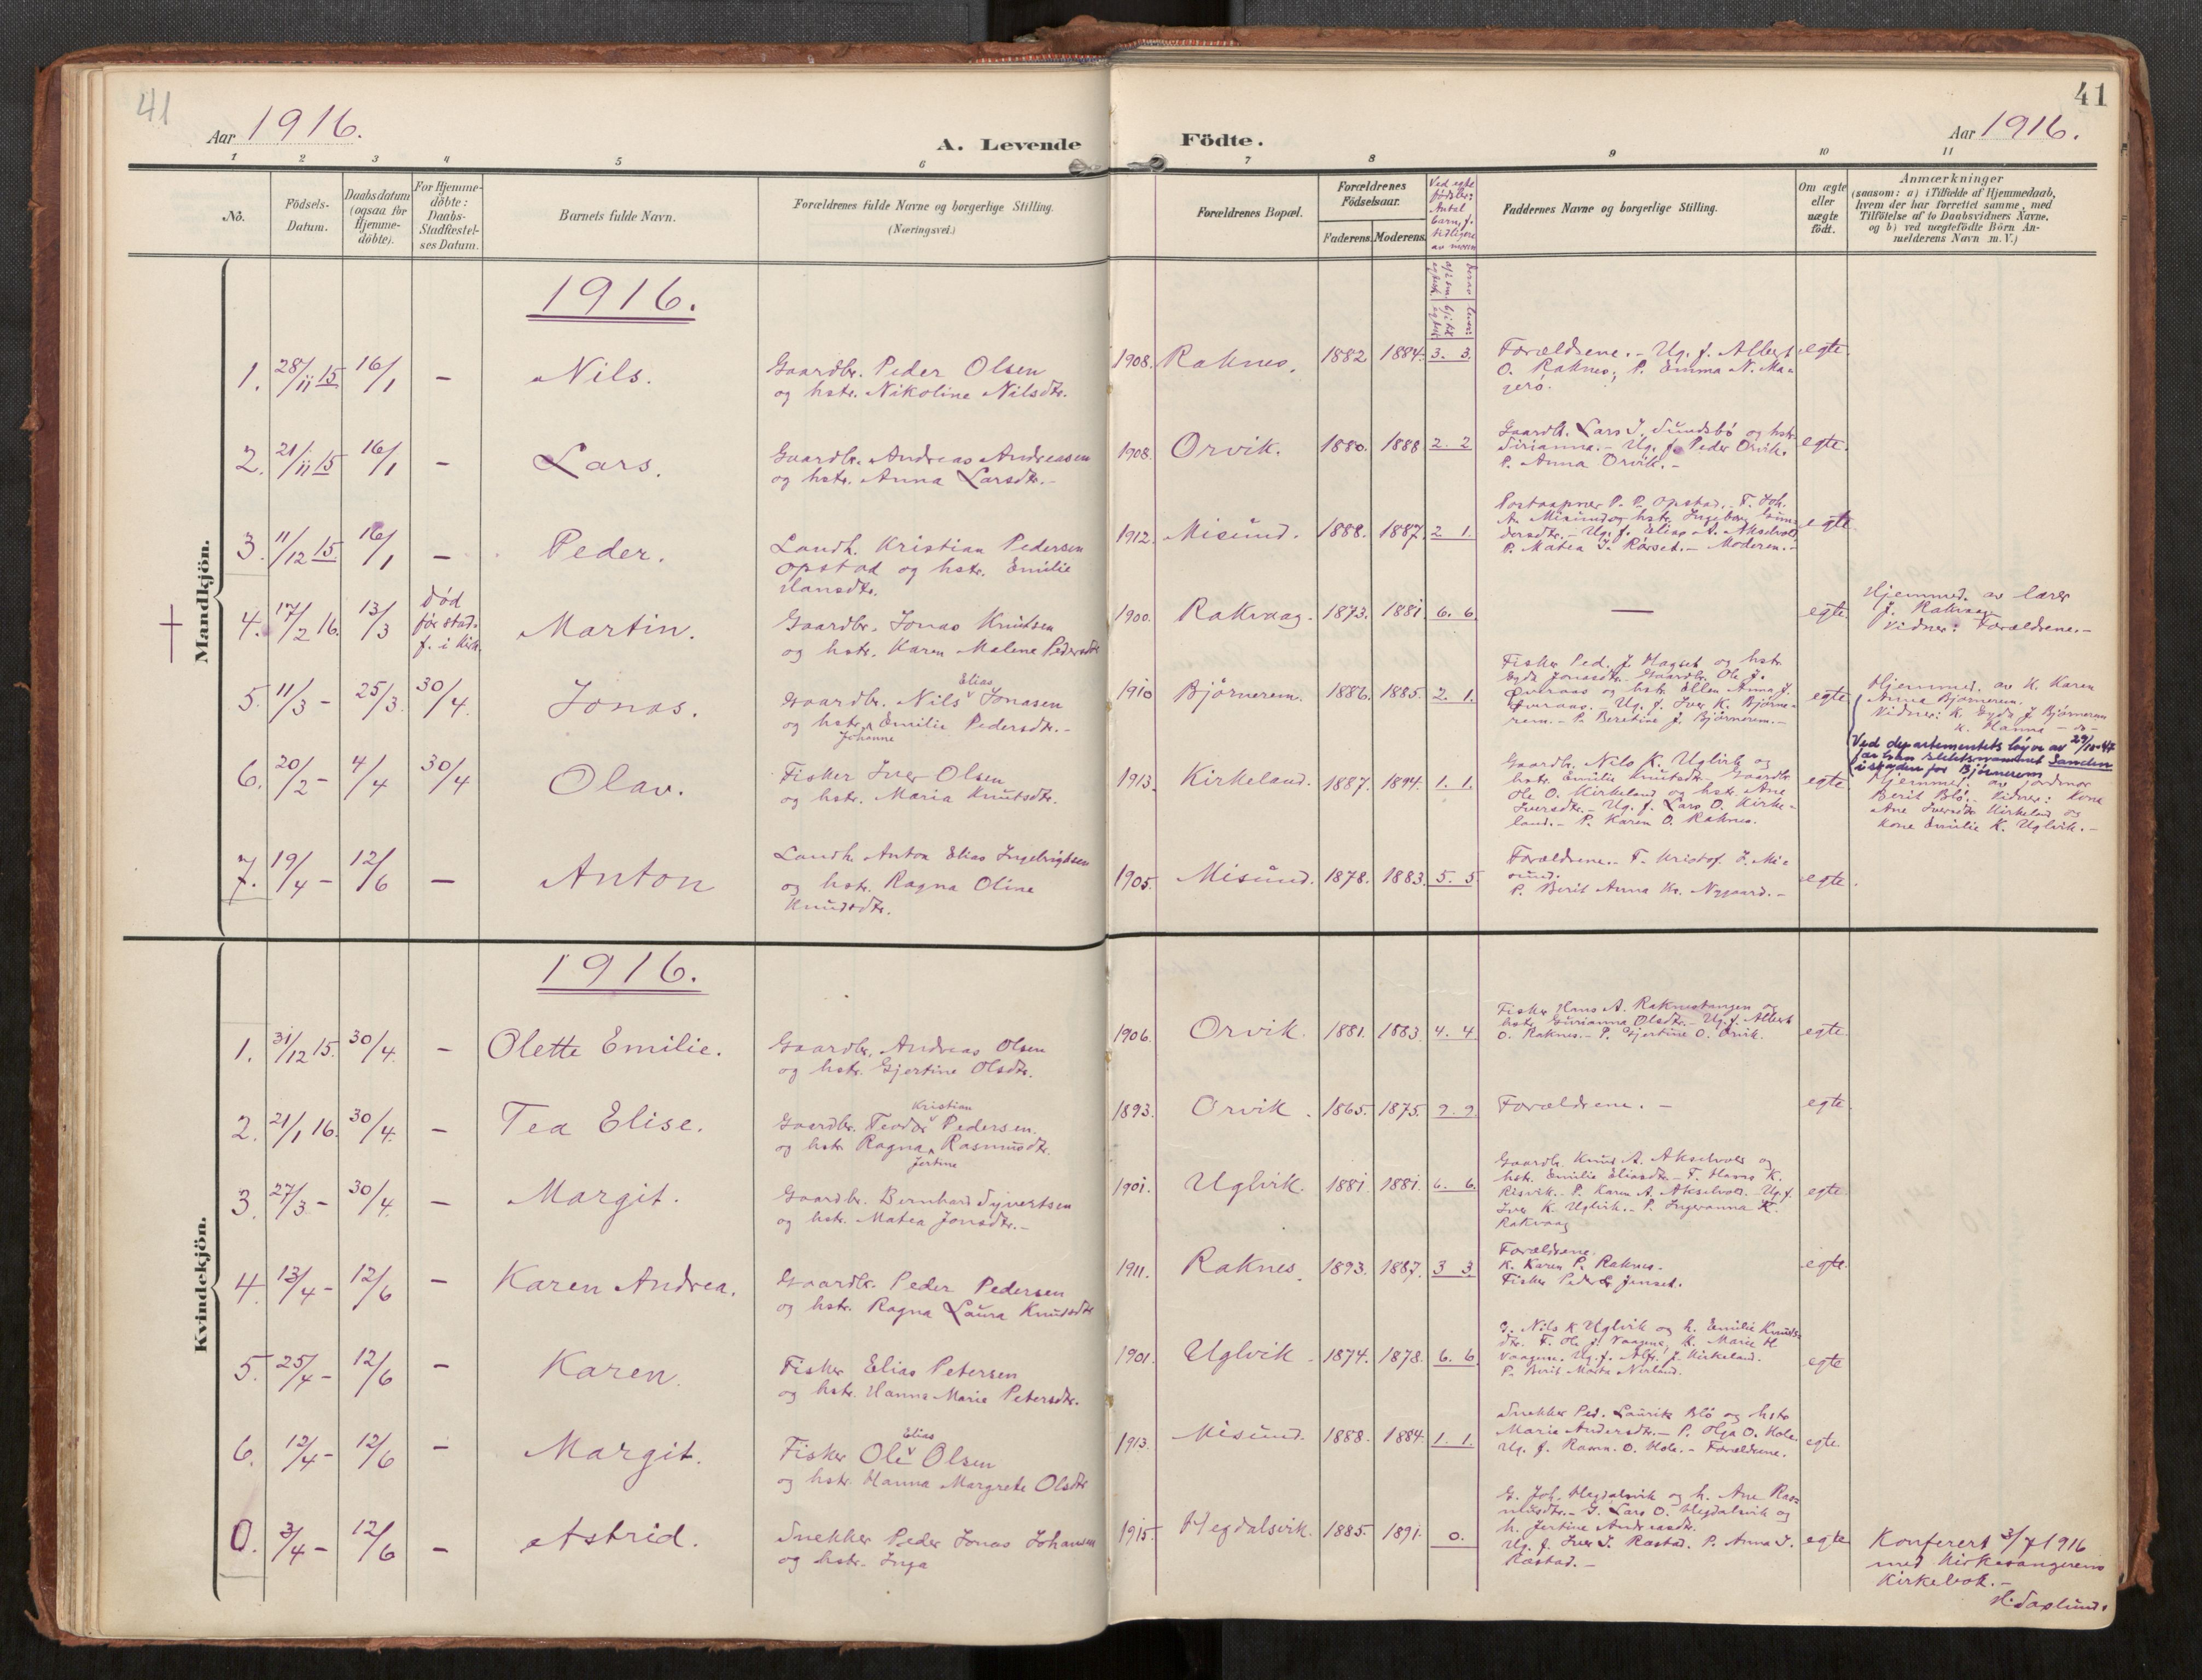 41
41
Aar 1916.
A. Levende Födte.
Aar 1916.
1 2 3 4 5 6 7 8 9 10 11
No.
Födsels-Datum.
Daabsdatum (ogsaa for Hjemme-döbte).
For Hjemme-döbte: Daabs-Stadfæstel-ses Datum.
Barnets fulde Navn.
Forældrenes fulde Navne og borgerlige Stilling.
(Næringsvei.)
Forældrenes Bopæl.
Forældrenes Födselsaar.
Faderens. Moderens.
Ved egte fødsler: Antal barn, f. tidligere av moren
Faddernes Navne og borgerlige Stilling.
Om ægte eller uægte födt.
Anmærkninger
(saasom: a) i Tilfælde af Hjemmedaab,
hvem der har forrettet samme, med
Tilföielse af to Daabsvidners Navne.
og b) ved uægtefödte Börn An-
melderens Navn m. V.)
Mandkjön.
1916.
1. 28/11 15 16/1 - Nils. Gaardbr. Peder Olsen
og hstr. Nikoline Nilsdtr.
1908. Raknes. 1882 1884. 3. 3.
Forældrene. - Ug. f. Albert
O. Raknes, P. Emma N. Ma-
gerö.
egte.
2. 21/11 15 16/1 - Lars. Gaardbr. Andreas Andreasen
og hstr. Anna Larsdtr. -
1908. Orvik. 1880. 1888 2. 2
Gaardb. Lars J. Sundsbö og hstr.
Sirianna. - Ug. f. Peder Orvik.
P. Anna Orvik. -
egte.
3. 11/12 15. 16/1 - Peder. Landh. Kristian Pedersen
Opstad og hstr. Emilie
Hansdtr.
1912. Misund. 1888. 1887. 2. 1.
Postaapner P. P. Opstad. F. Joh.
A. Misund og hstr. Ingeborg Gun-
dersdtr. - Ug. f. Elias A. Akselvoll
P. Matea J. Rörset. - Moderen. -
egte
† 4. 17/2 16. 13/3 Död før stad-f. i Kirk. Martin. Gaardbr. Jonas Knutsen
og hstr. Karen Malene Pedersdtr
1900. Rakvaag. 1873. 1881. 6. 6.
—
egte
Hjemmed. av lærer
J. Rakvaag
Vidner: Forældrene. -
5. 11/3 - 25/3. 30/4. Jonas. Gaardbr. Nils Elias Jonasen
og hstr. Johanne Emilie Pedersdtr. -
1910 Bjørnerem. 1886. 1885. 2. 1.
Fisker Ped. J. Hagset og hstr.
Gyda Jonasdtr. Gaardbr. Ole J.
Øveraas og hstr. Ellen Anna J.
Øveraas. - Ug. f. Iver K. Bjørne-
rem. - P. Beretine J. Bjørnerem. -
egte
Hjemmed. av K. Karen
Anna Bjørnerem.
Vidner: K. Gyda J Bjørnerem
K. Hanna - do -
Ved departementets löyve av 29/10-47
før han slektsnamnet Sanden
i staden for Bjørnerem
6. 20/2 - 4/4 30/4 Olav. Fisker Iver Olsen
og hstr. Maria Knutsdtr.
1913. Kirkeland. 1887. 1894. 1. 1.
Gaardbr. Nils K. Uglvik og
hstr. Emilie Knutsdtr. Gaardbr.
Ole O. Kirkeland og hstr. Ane
Iversdtr. - Ug. f. Lars O. Kirke-
land. - P. Karen O. Raknes.
egte
Hjemmed. av jordmor
Berit Blö. - Vidner: Kone
Ane Iversdtr Kirkeland og
Kone Emilie K. Uglvik. -
7. 19/4 - 12/6 - Anton Landh. Anton Elias Ingebrigtsen
og hstr. Ragna Oline
Knudsdtr.
1905. Misund. 1878. 1883. 5. 5
Forældrene. - F. Kristof. J. Mi-
sund.
P. Berit Anna Kr. Nygaard. -
egte.
Kvindekjön.
1916.
1. 31/12 15. 30/4. - Olette Emilie. Gaardbr. Andreas Olsen
og hstr. Gjertine Olsdtr.
1906. Orvik. 1881. 1883. 4. 4
Fisker Hans A. Raknestangen og
hstr. Gurianna Olsdtr. - Ug. f. Albert
O. Raknes. - P. Gjertine O. Orvik.
egte
2. 21/1 16. 30/4. - Tea Elise. Gaardbr. Teodor Kristian Pedersen.
og hstr Ragna Jertine Rasmusdtr.
1893. Orvik. 1865. 1875. 9. 9.
Forældrene. -
egte.
3. 27/3 - 30/4. - Margit. Gaardbr. Bernhard Syvertsen
og hstr. Matea Jonsdtr. -
1901. Uglvik. 1881 1881. 6. 6.
Gaardb. Knud A. Akselvoll og
hstr. Emilie Eliasdtr - F. Hans K.
Risvik. - P. Karen A. Akselvoll. - Ug. f.
Iver K. Uglvik. - P. Ingeranna K.
Rakvaag
egte
4. 13/4 - 12/6 - Karen Andrea. Gaardbr. Peder Pedersen
og hstr. Ragna Laura Knudsdtr
1911. Raknes. 1893. 1887. 3 3.
Forældrene.
K. Karen P. Raknes.
Fisker Peder Jenset.
egte.
5. 25/4 - 12/6 - Karen. Fisker Elias Petersen
og hstr. Hanna Marie Petersdtr.
1901. Uglvik. 1874. 1878. 6. 6
G. Nils K Uglvik og h. Emilie Knuds-
dtr. F. Ole J. Vaagnes, K. Marie H
Vaagnes. Ug. f. Alfr. J. Kirkeland.
P. Berit Marta Nerland.
egte
6. 12/4 - 12/6 - Margit. Fisker Ole Elias Olsen
og hstr. Hanna Margrete Olsdtr
1913. Misund. 1888. 1884. 1. 1.
Snekker Ped. Laurits Blö og hstr
Marie Andersdtr. - P. Olga O. Hole.
Ug. f. Rasm. O. Hole. - Forældrene.
egte.
0. 3/4 - 12/6 - Astrid. Snekker Peder Jonas Johansen
og hstr. Inga
1915. Hegdalsvik. 1885. 1891. 0.
G. Joh. Hegdalsvik og h. Ane Ras-
musdtr. - G. Lars O. Hegdalsvik og
h. Jertine Andreasdtr.
Ug. f. Iver J. Rastad. P. Anna J.
Rastad. -
egte
Konferert 3/7 1916
med Kirkesangerens
Kirkebok. -
H. Saxlund.